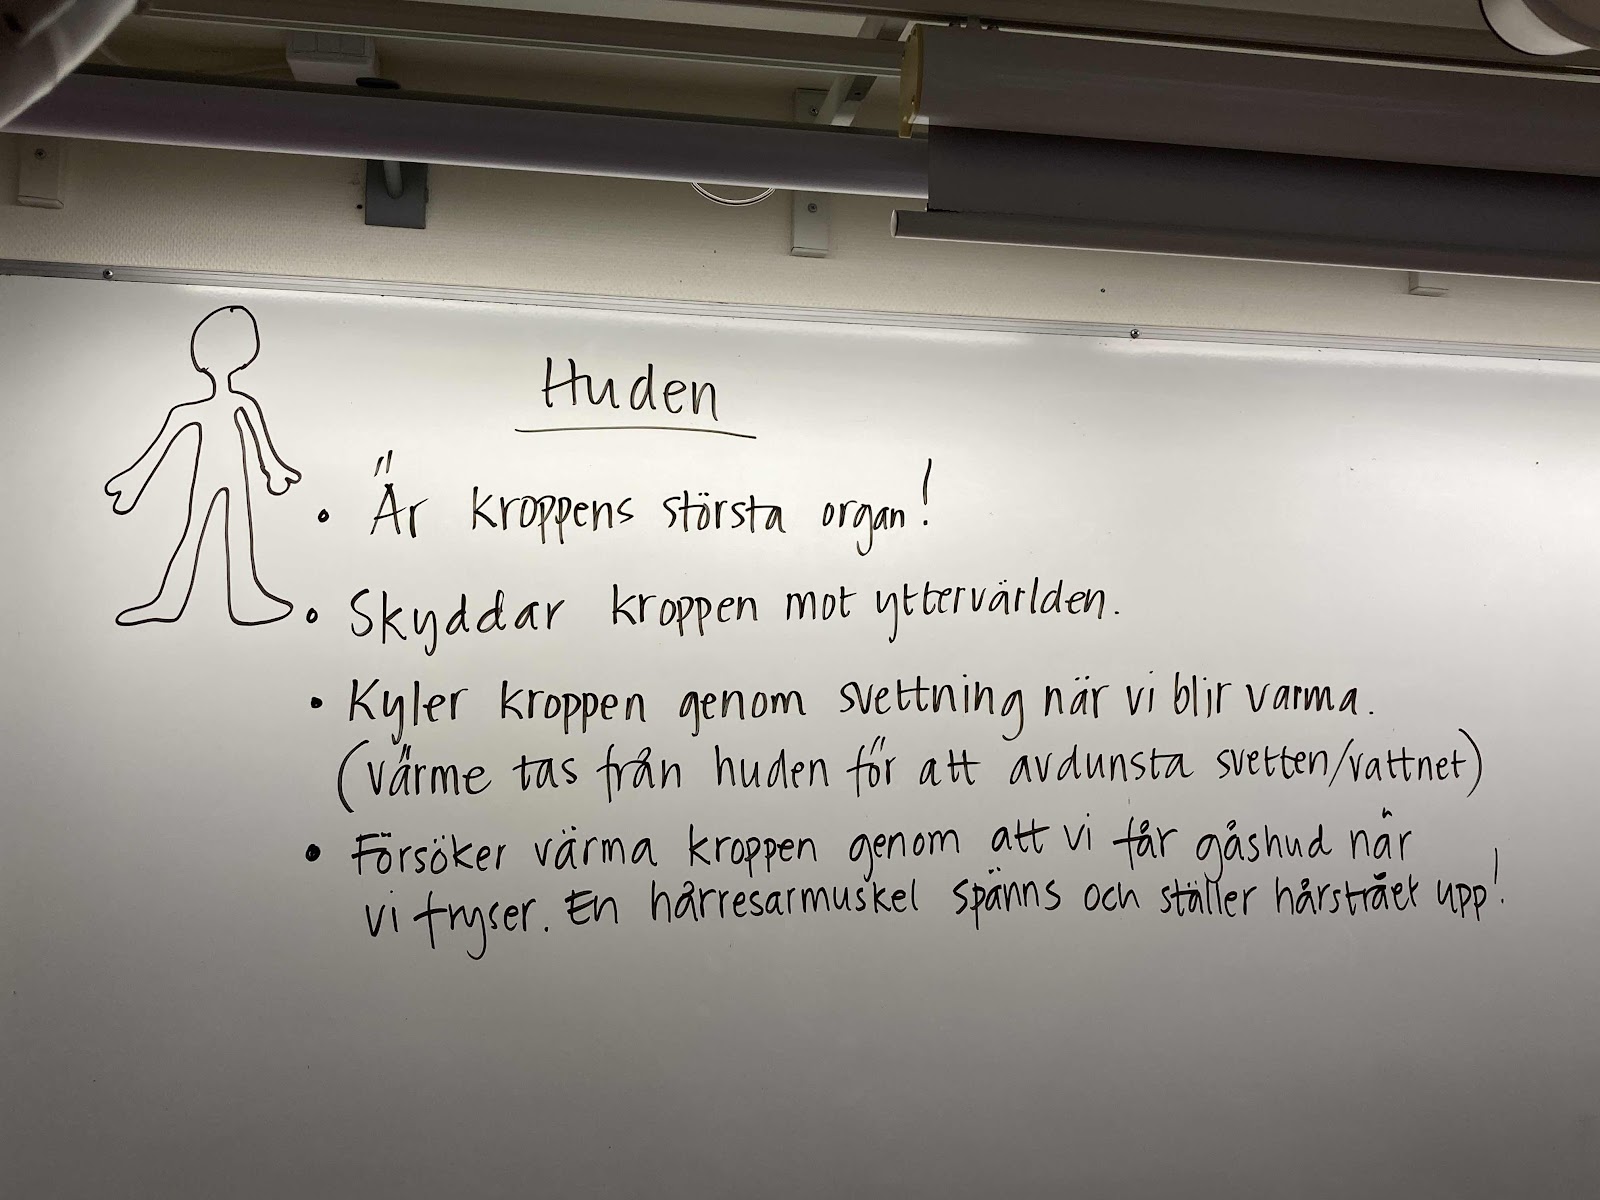 Huden
• Är kroppens största organ!
• Skyddar kroppen mot yttervärlden.
• Kyler kroppen genom svettning när vi blir varma.
(värme tas från huden för att avdunsta svetten/vattnet)
• Försöker värma kroppen genom att vi får gåshud når
vi fryser. En hårresarmuskel spänns och ställer hårstrået upp!